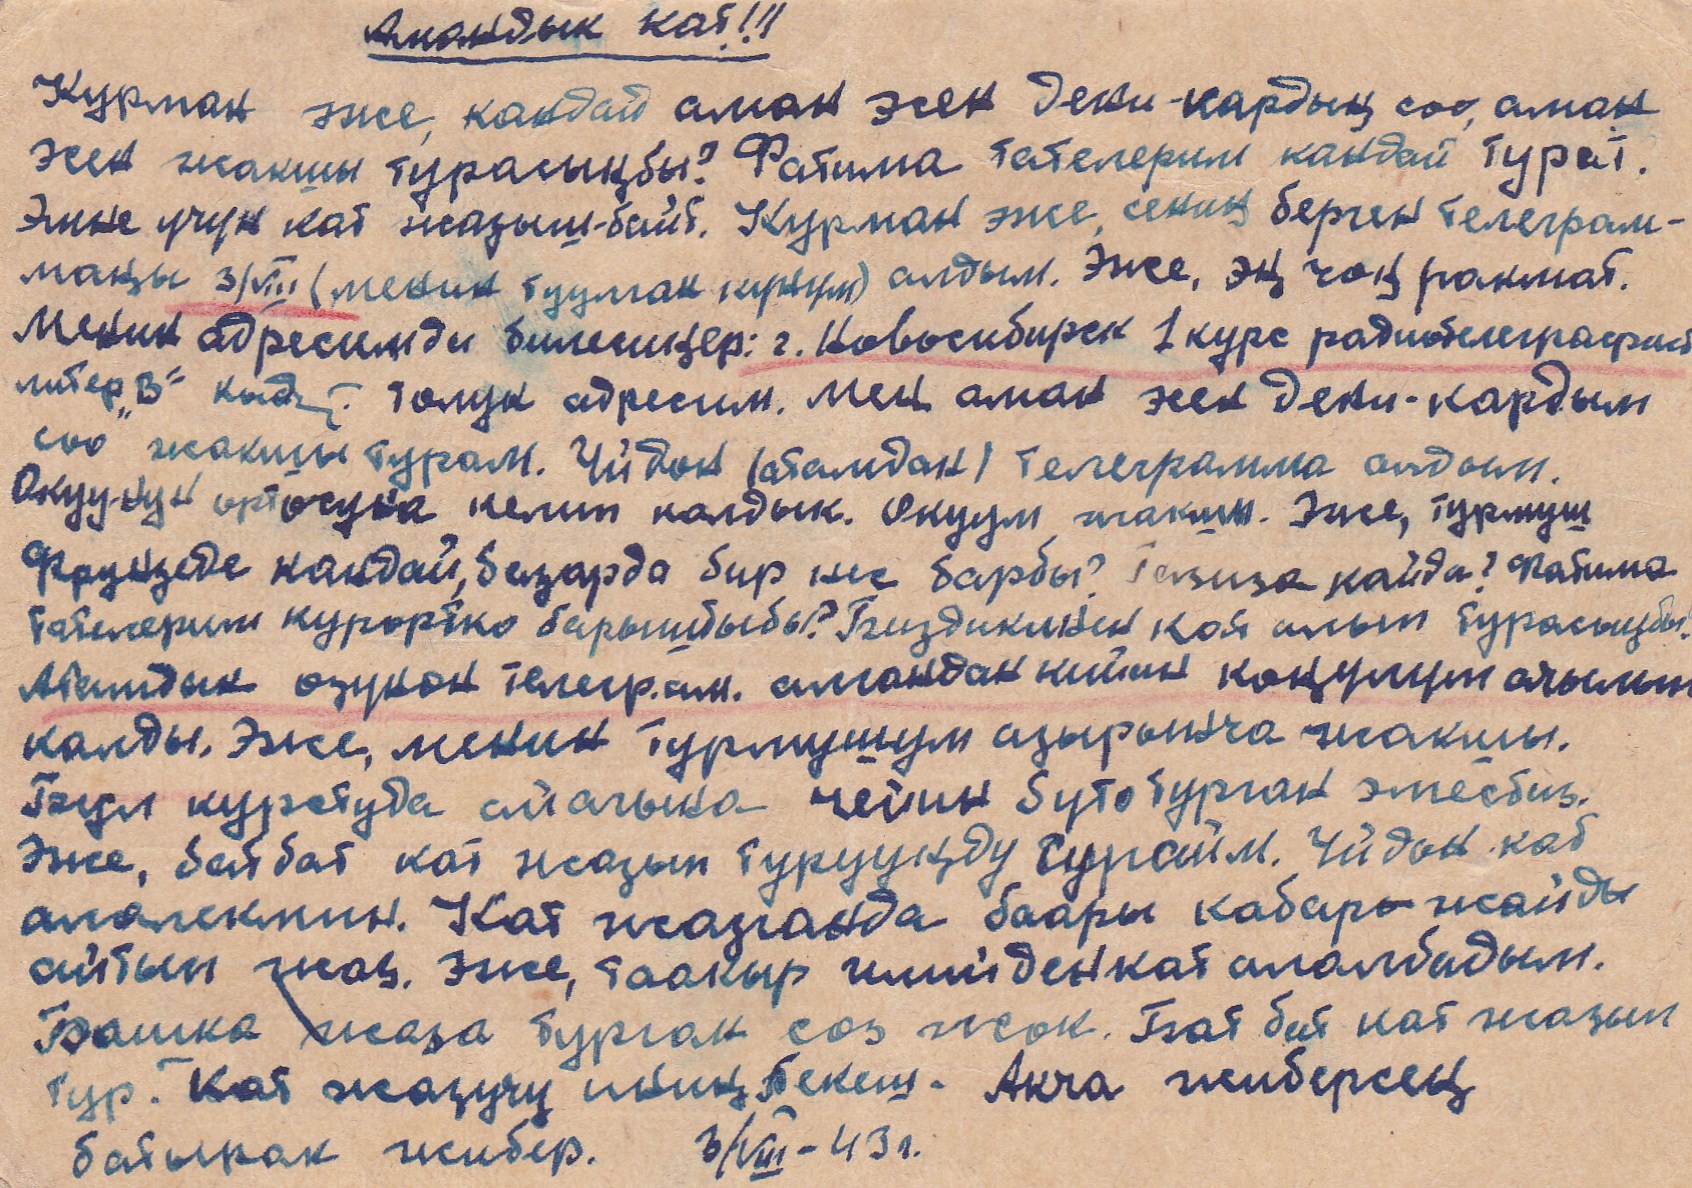 Амандык кат!!!
Курман эже, кандай аман эсен дени-кардың соо, аман
эсен жакшы турасыңбы? Фатима тателерим кандай турат.
Эмне үчүн кат жазыш-байт. Курман эже, сениң берген телеграм-
маңы 3/VIII (менин туулган күнүм) алдым. Эже, эң чоң рахмат.
Менин адресимди билесиңер: г. Новосибирск 1 курс радиотелеграфист
литер "В" толук адресим. Мең аман эсен дени-кардым
соо жакшы турам. Үйдөн (атамдан) телеграмма алдым.
Окуунун ортосуна келип калдык. Окуум жакшы. Эже, турмуш
Фрунзеде кандай, базарда бир не барбы? Газиза кайда? Фатима
тателерим курортко барыштыбы? Биздикинен кат алып турасыңбы?
Атамдын өзүнөн телеграм. алгандан кийин көңүлүм ачылып
калды. Эже, менин турмушум азырынча жакшы.
Бул курстуда ай аягына чейин бүтө турган эмесбиз.
Эже, бат бат кат жазып турууңду сураймын. Үйдөн кат
ала элекмин. Кат жазганда баары кабарь жайды
айтып жаз. Эже, таакыр үйдөн кат ала албадым.
Башка жаза турган сөз жок. Бат бат кат жазып
тур. Кат жазуучу иниң Бекеш. Акча жиберсең
батырак жибер. 3/VIII-43 г.